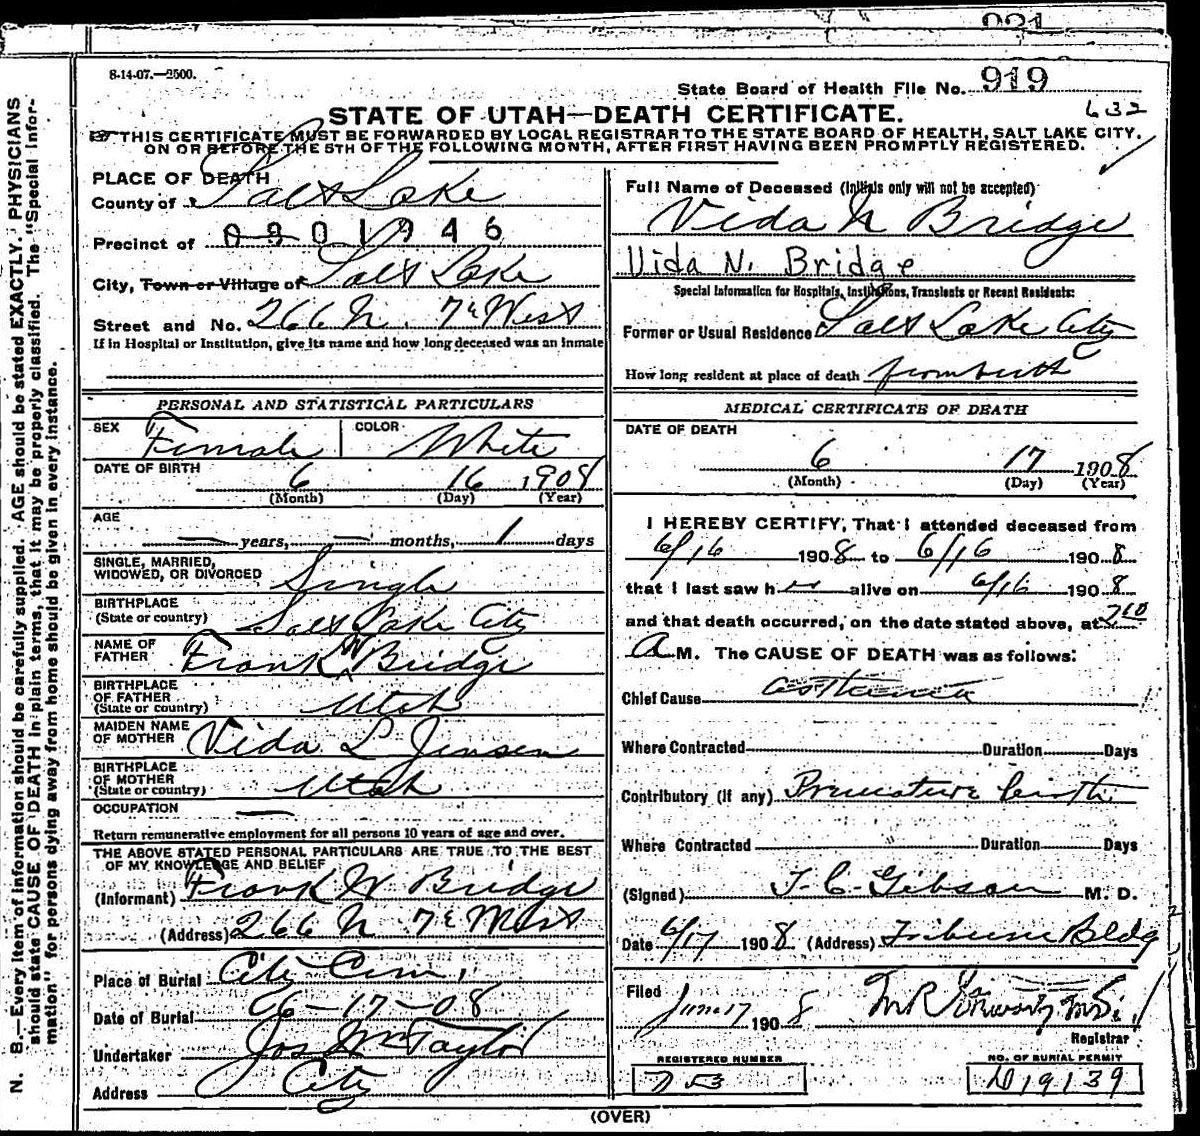 921
8-14-07.—2500.
State Board of Health File No. 919
STATE OF UTAH—DEATH CERTIFICATE.
632
THIS CERTIFICATE MUST BE FORWARDED BY LOCAL REGISTRAR TO THE STATE BOARD OF HEALTH, SALT LAKE CITY.
ON OR BEFORE THE 5TH OF THE FOLLOWING MONTH, AFTER FIRST HAVING BEEN PROMPTLY REGISTERED.
PLACE OF DEATH
County of Salt Lake
Precinct of 0801946
City, Town or Village of Salt Lake
Street and No. 266 N. 7th West
If in Hospital or Institution, give its name and how long deceased was an inmate
PERSONAL AND STATISTICAL PARTICULARS
SEX Female COLOR White
DATE OF BIRTH 6 16 1908
(Month) (Day) (Year)
AGE
— years, — months, 1 days
SINGLE, MARRIED,
WIDOWED, OR DIVORCED Single
BIRTHPLACE
(State or country) Salt Lake City
NAME OF
FATHER Frank W Bridge
BIRTHPLACE
OF FATHER
(State or country) Utah
MAIDEN NAME
OF MOTHER Vida L Jensen
BIRTHPLACE
OF MOTHER
(State or country) Utah
OCCUPATION —
Return remunerative employment for all persons 10 years of age and over.
THE ABOVE STATED PERSONAL PARTICULARS ARE TRUE TO THE BEST
OF MY KNOWLEDGE AND BELIEF
(Informant) Frank W Bridge
(Address) 266 N 7th West
Place of Burial City Cem.
Date of Burial 06-17-08
Undertaker Jos Wm Taylor
Address City
Full Name of Deceased (Initials only will not be accepted)
Vida N Bridge
Vida N. Bridge
Special Information for Hospitals, Institutions, Transients or Recent Residents:
Former or Usual Residence Salt Lake City
How long resident at place of death from birth
MEDICAL CERTIFICATE OF DEATH
DATE OF DEATH
6 17 1908
(Month) (Day) (Year)
I HEREBY CERTIFY, That I attended deceased from
6/16 1908 to 6/16 1908
that I last saw h alive on 6/16 1908
and that death occurred, on the date stated above, at 7.10
A M. The CAUSE OF DEATH was as follows:
Chief Cause asthenia
Where Contracted Duration Days
Contributory (if any) Premature birth
Where Contracted Duration Days
(Signed) J. C. Gibson M. D.
Date 6/17 1908 (Address) Tribune Bldg
Filed June 17 1908
Registrar
REGISTERED NUMBER
753
NO. OF BURIAL PERMIT
D19139
(OVER)
N. B.—Every item of information should be carefully supplied. AGE should be stated EXACTLY. PHYSICIANS
should state CAUSE OF DEATH in plain terms, that it may be properly classified. The "Special Infor-
mation" for persons dying away from home should be given in every instance.